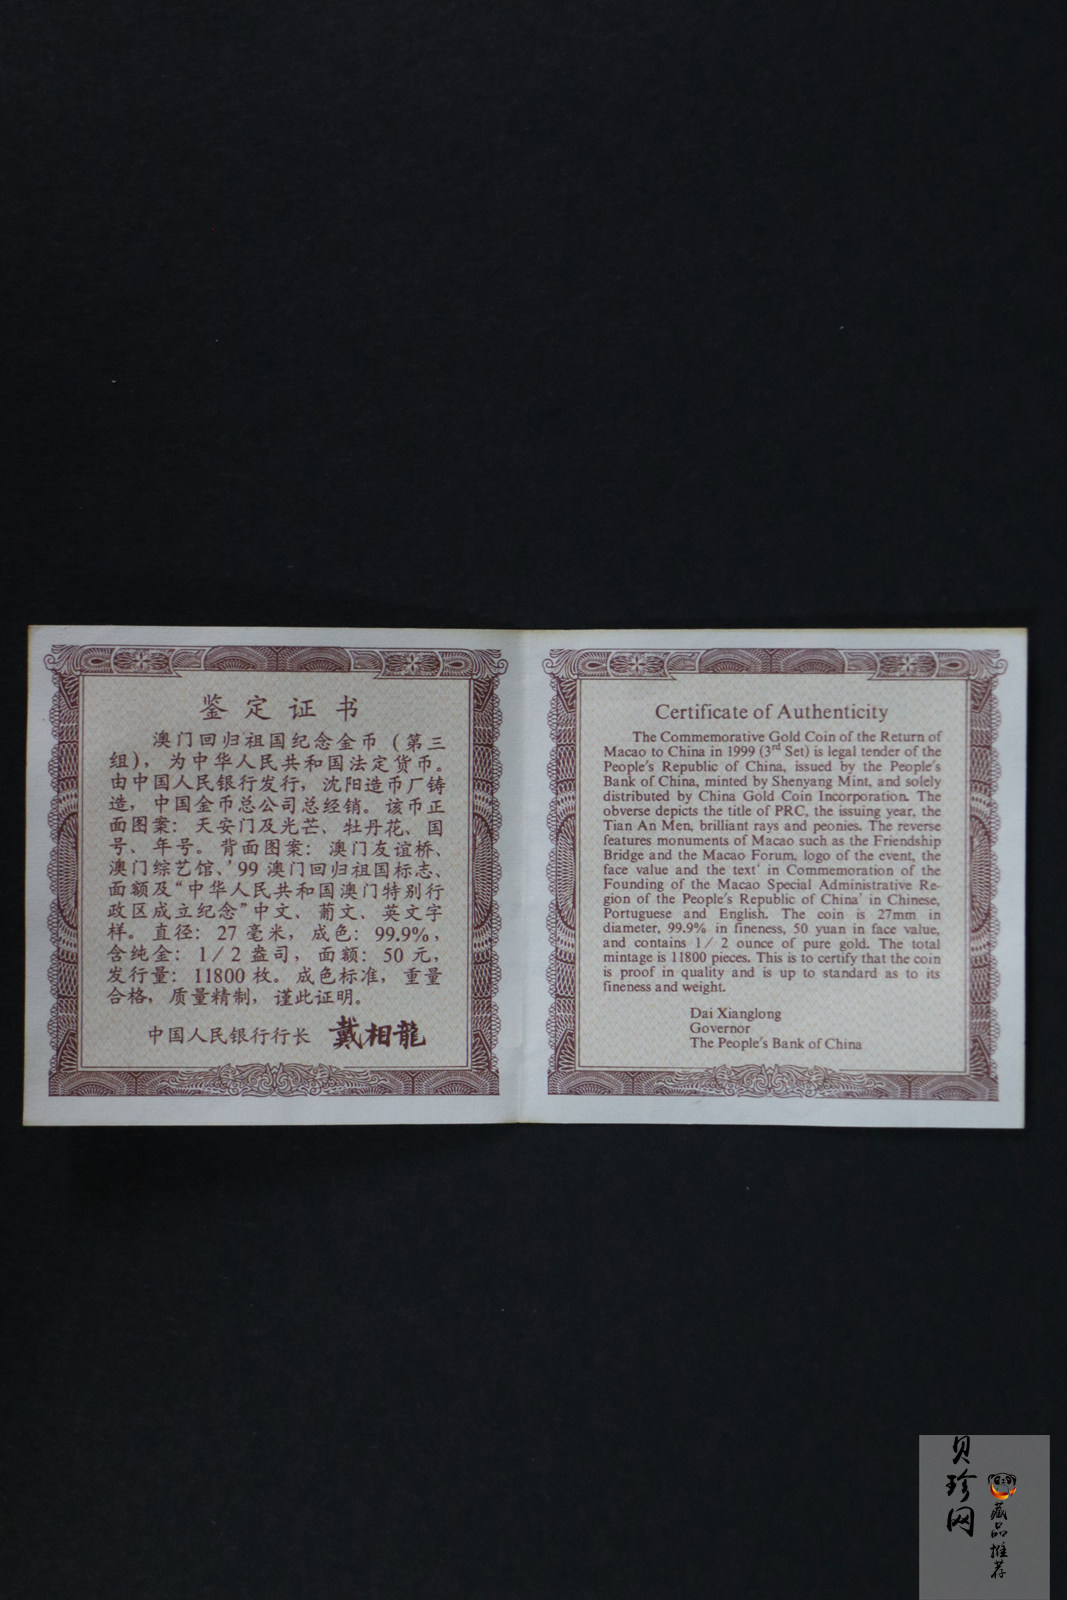 鉴定证书
澳门回归祖国纪念金币(第三
组),为中华人民共和国法定货币。
由中国人民银行发行,沈阳造币厂铸
造,中国金币总公司总经销。该币正
面图案:天安门及光芒、牡丹花、国
号、年号。背面图案:澳门友谊桥、
澳门综艺馆、'99澳门回归祖国标志、
面额及“中华人民共和国澳门特别行
政区成立纪念”中文、葡文、英文字
样。直径:27毫米,成色:99.9%,
含纯金:1/2盎司,面额:50元,
发行量:11800枚。成色标准,重量
合格,质量精制,谨此证明。
中国人民银行行长 戴相龍
Certificate of Authenticity
The Commemorative Gold Coin of the Return of
Macao to China in 1999 (3rd Set) is legal tender of the
People's Republic of China, issued by the People's
Bank of China, minted by Shenyang Mint, and solely
distributed by China Gold Coin Incorporation. The
obverse depicts the title of PRC, the issuing year, the
Tian An Men, brilliant rays and peonies. The reverse
features monuments of Macao such as the Friendship
Bridge and the Macao Forum, logo of the event, the
face value and the text' in Commemoration of the
Founding of the Macao Special Administrative Re-
gion of the People's Republic of China' in Chinese,
Portuguese and English. The coin is 27mm in
diameter, 99.9% in fineness, 50 yuan in face value,
and contains 1/2 ounce of pure gold. The total
mintage is 11800 pieces. This is to certify that the coin
is proof in quality and is up to standard as to its
fineness and weight.
Dai Xianglong
Governor
The People's Bank of China
贝珍网
藏品推荐